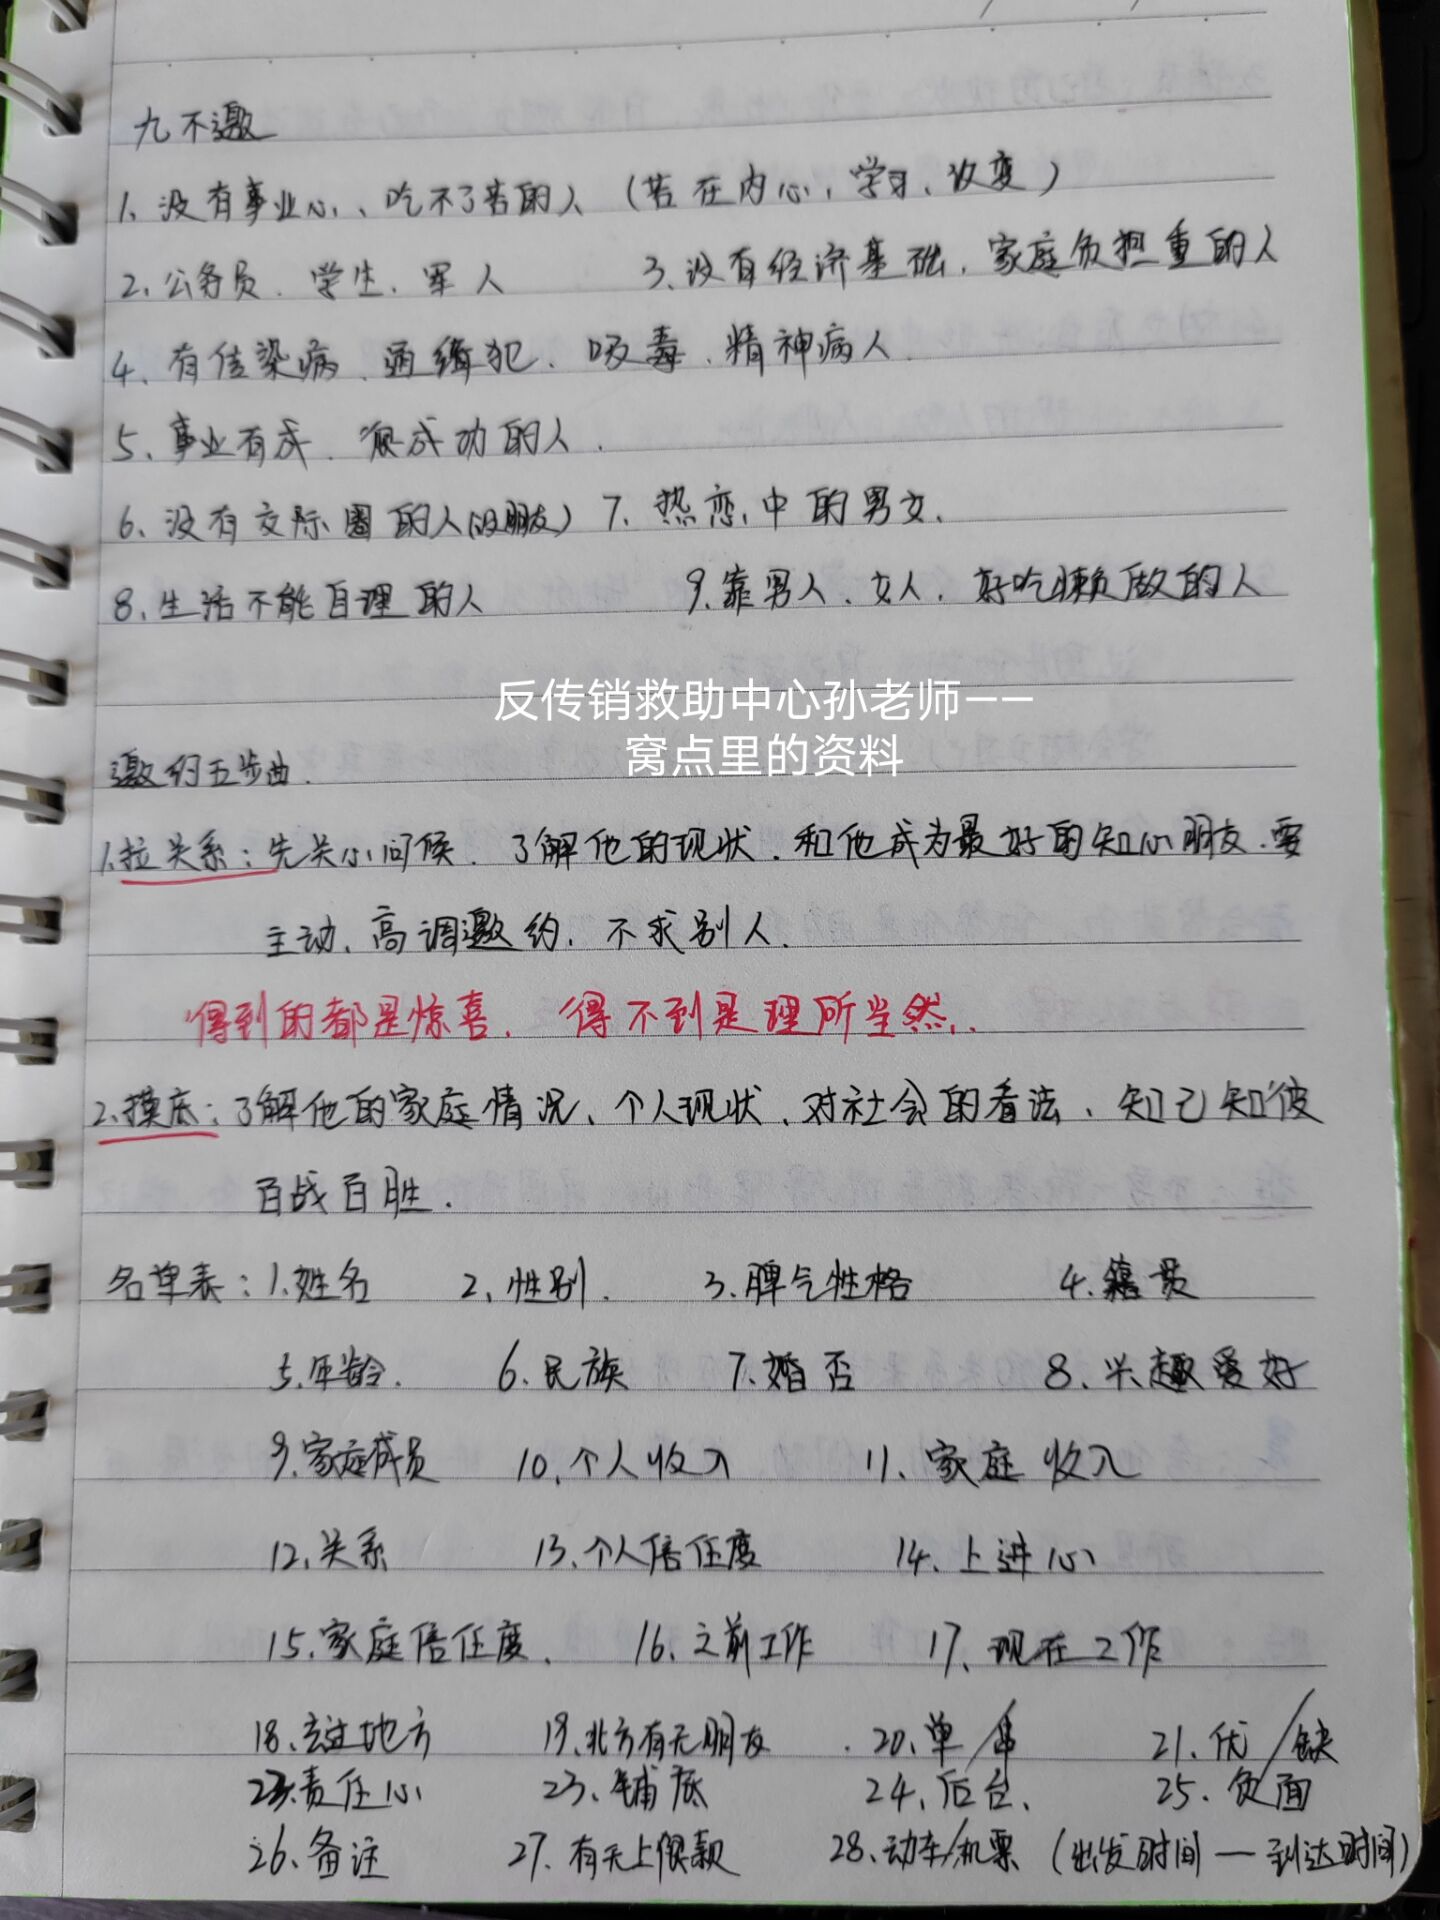 九不邀
1、没有事业心、吃不了苦的人（苦在内心，学习、改变）
2、公务员、学生、军人 3、没有经济基础、家庭负担重的人
4、有传染病、通缉犯、吸毒、精神病人.
5、事业有成、很成功的人.
6、没有交际圈的人(没朋友) 7、热恋中的男女.
8、生活不能自理的人 9、靠男人、女人，好吃懒做的人
反传销救助中心孙老师——
窝点里的资料
邀约五步曲.
1.拉关系：先关心问候、了解他的现状、和他成为最好的知心朋友.要
主动、高调邀约，不求别人.
得到的都是惊喜，得不到是理所当然.
2.摸底：了解他的家庭情况、个人现状、对社会的看法、知己知彼
百战百胜.
名单表：1.姓名 2、性别. 3.脾气性格 4.籍贯
5.年龄. 6.民族 7.婚否 8、兴趣爱好
9.家庭成员 10、个人收入 11、家庭收入
12、关系 13、个人信任度 14、上进心
15.家庭信任度. 16、之前工作 17、现在工作
18、去过地方 19、北方有无朋友 20、单/串 21、优/缺
23.责任心 23、铺底 24、后台、 25、负面
26、备注 27、有无上保款 28、动车/机票（出发时间—到达时间）